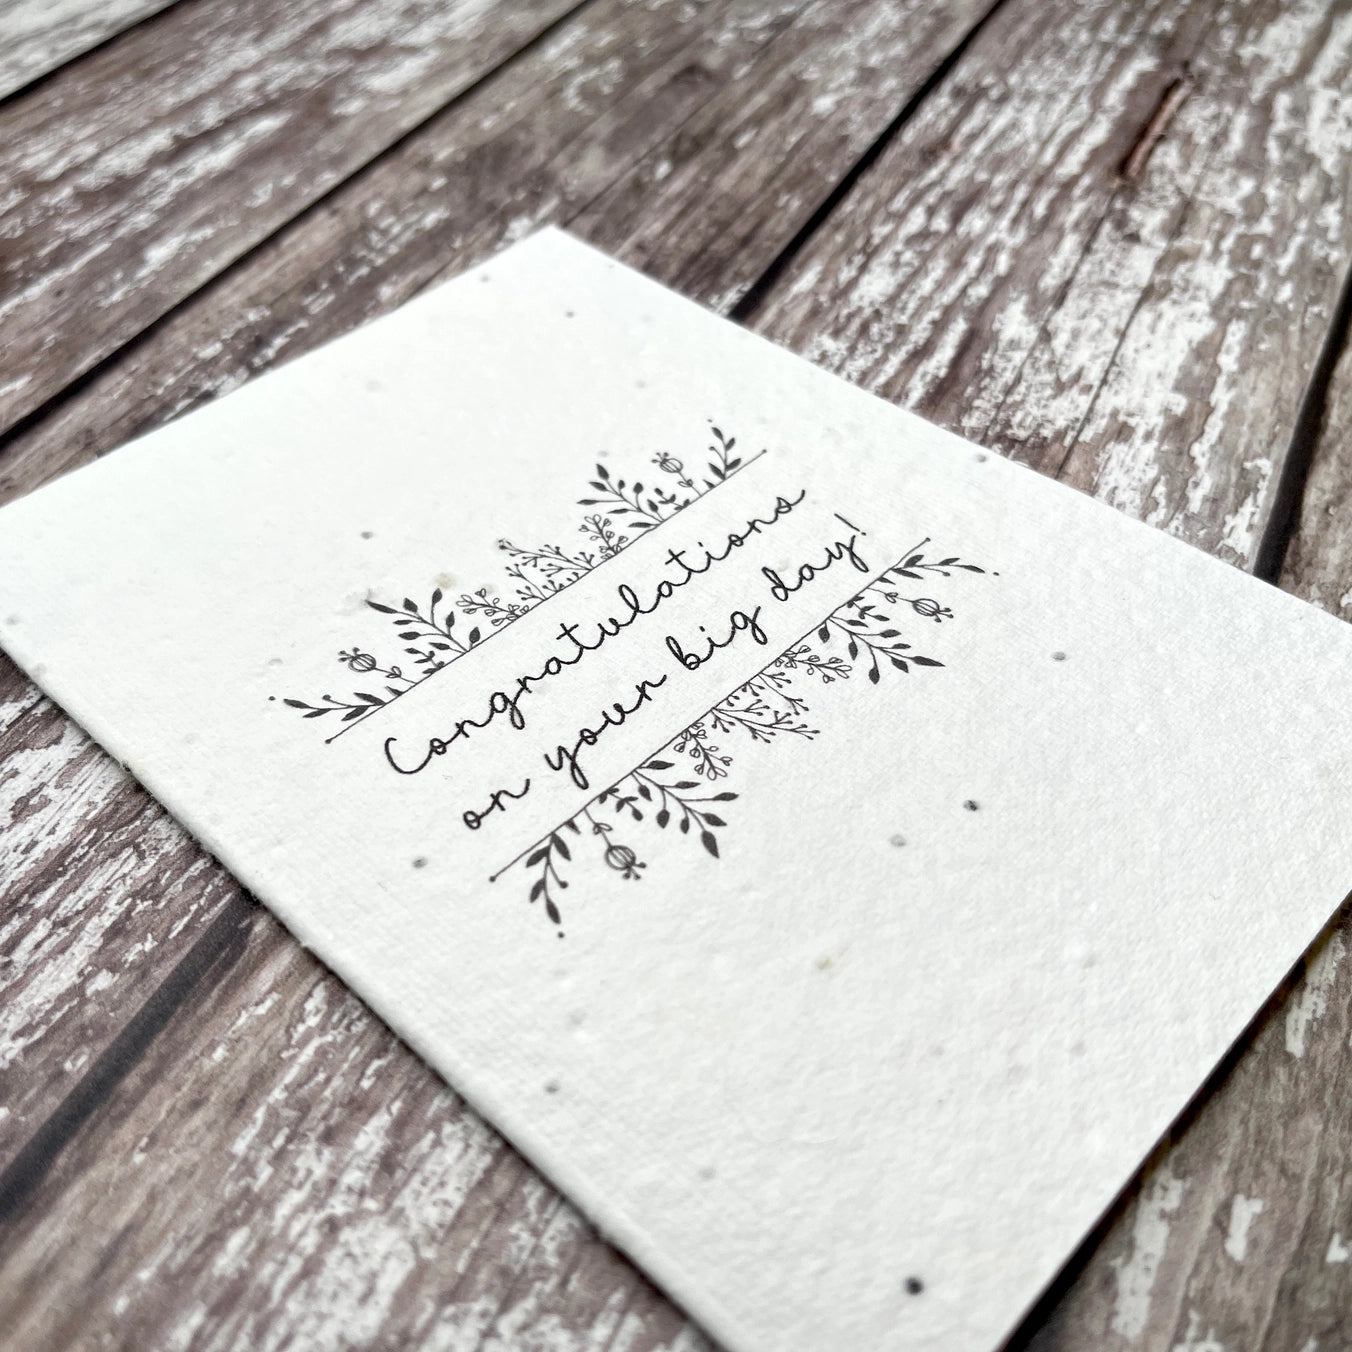 Congratulations
on your big day!